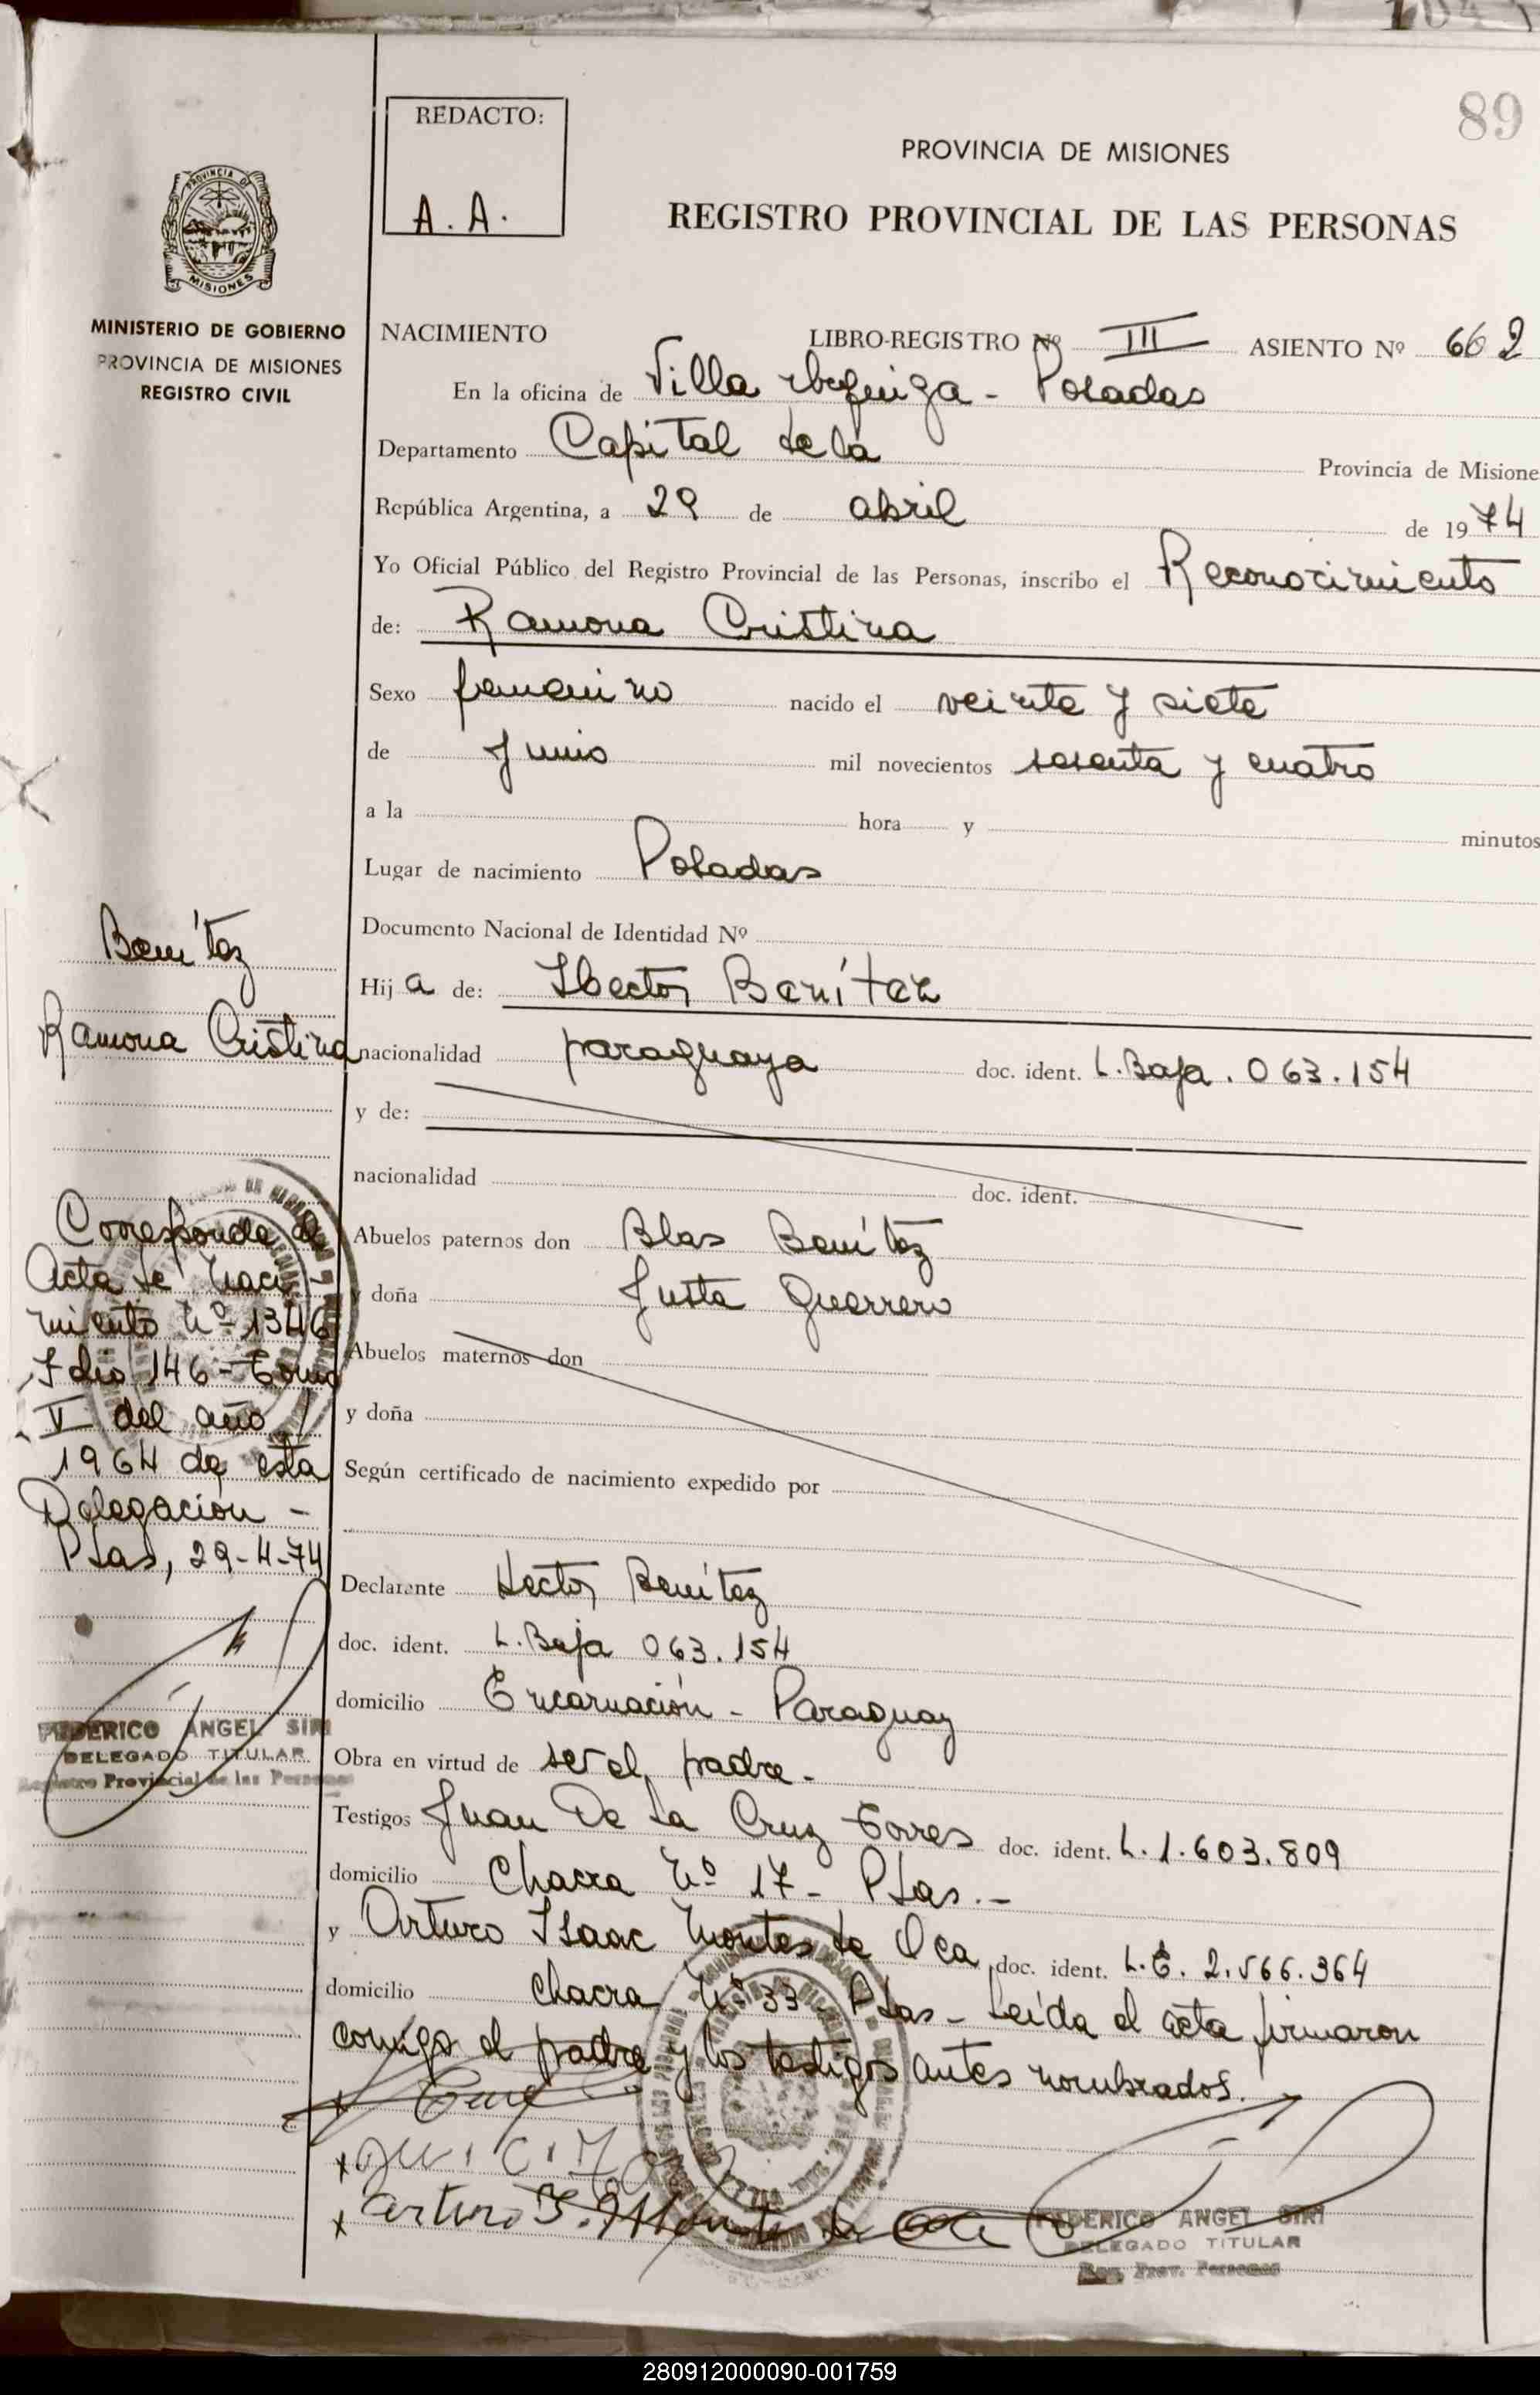 89
REDACTO:
A. A.
PROVINCIA DE MISIONES
REGISTRO PROVINCIAL DE LAS PERSONAS
PROVINCIA DE
MISIONES
MINISTERIO DE GOBIERNO
PROVINCIA DE MISIONES
REGISTRO CIVIL
NACIMIENTO LIBRO-REGISTRO Nº III ASIENTO Nº 662
En la oficina de Villa - Posadas
Departamento Capital de la Provincia de Misione
República Argentina, a 29 de abril de 1974
Yo Oficial Público del Registro Provincial de las Personas, inscribo el Reconocimiento
de: Ramona Cristina
Sexo femenino nacido el veinte y siete
de Junio mil novecientos sesenta y cuatro
a la hora y minutos
Lugar de nacimiento Posadas
Documento Nacional de Identidad Nº
Hija de: Hector Benítez
nacionalidad paraguaya doc. ident. L. Baja. 063.154
y de:
nacionalidad doc. ident.
Abuelos paternos don Blas Benítez
y doña Justa Guerrero
Abuelos maternos don
y doña
Según certificado de nacimiento expedido por
Declarante Hector Benítez
doc. ident. L. Baja 063.154
domicilio Encarnación - Paraguay
Obra en virtud de ser el padre -
Testigos Juan De La Cruz Torres doc. ident. L. 1.603.809
domicilio Chacra Nº 17 - Pdas. -
y Arturo Isaac Montes de Oca doc. ident. L.E. 2.566.364
domicilio Chacra Nº 33 - Pdas - Leída el acta firmaron
conmigo el padre y los testigos antes nombrados.
Arturo I. Montes de Oca
FEDERICO ANGEL SIRI
DELEGADO TITULAR
Reg. Prov. Personas
Benítez
Ramona Cristina
Corresponde al
Acta de Naci
miento Nº 1346
Folio 146 - Tomo
V del año
1964 de esta
Delegación -
Pdas, 29-4-74
FEDERICO ANGEL SIRI
DELEGADO TITULAR
Registro Provincial de las Personas
280912000090-001759